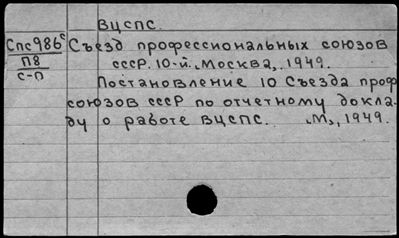 ВЦСПС.
Спс986с Съезд профессиональных союзов
П8 СССР. 10-й. Москва, 1949.
С-П Постановление 10 Съезда проф
союзов СССР по отчетному докла-
ду о работе ВЦСПС. М., 1949.